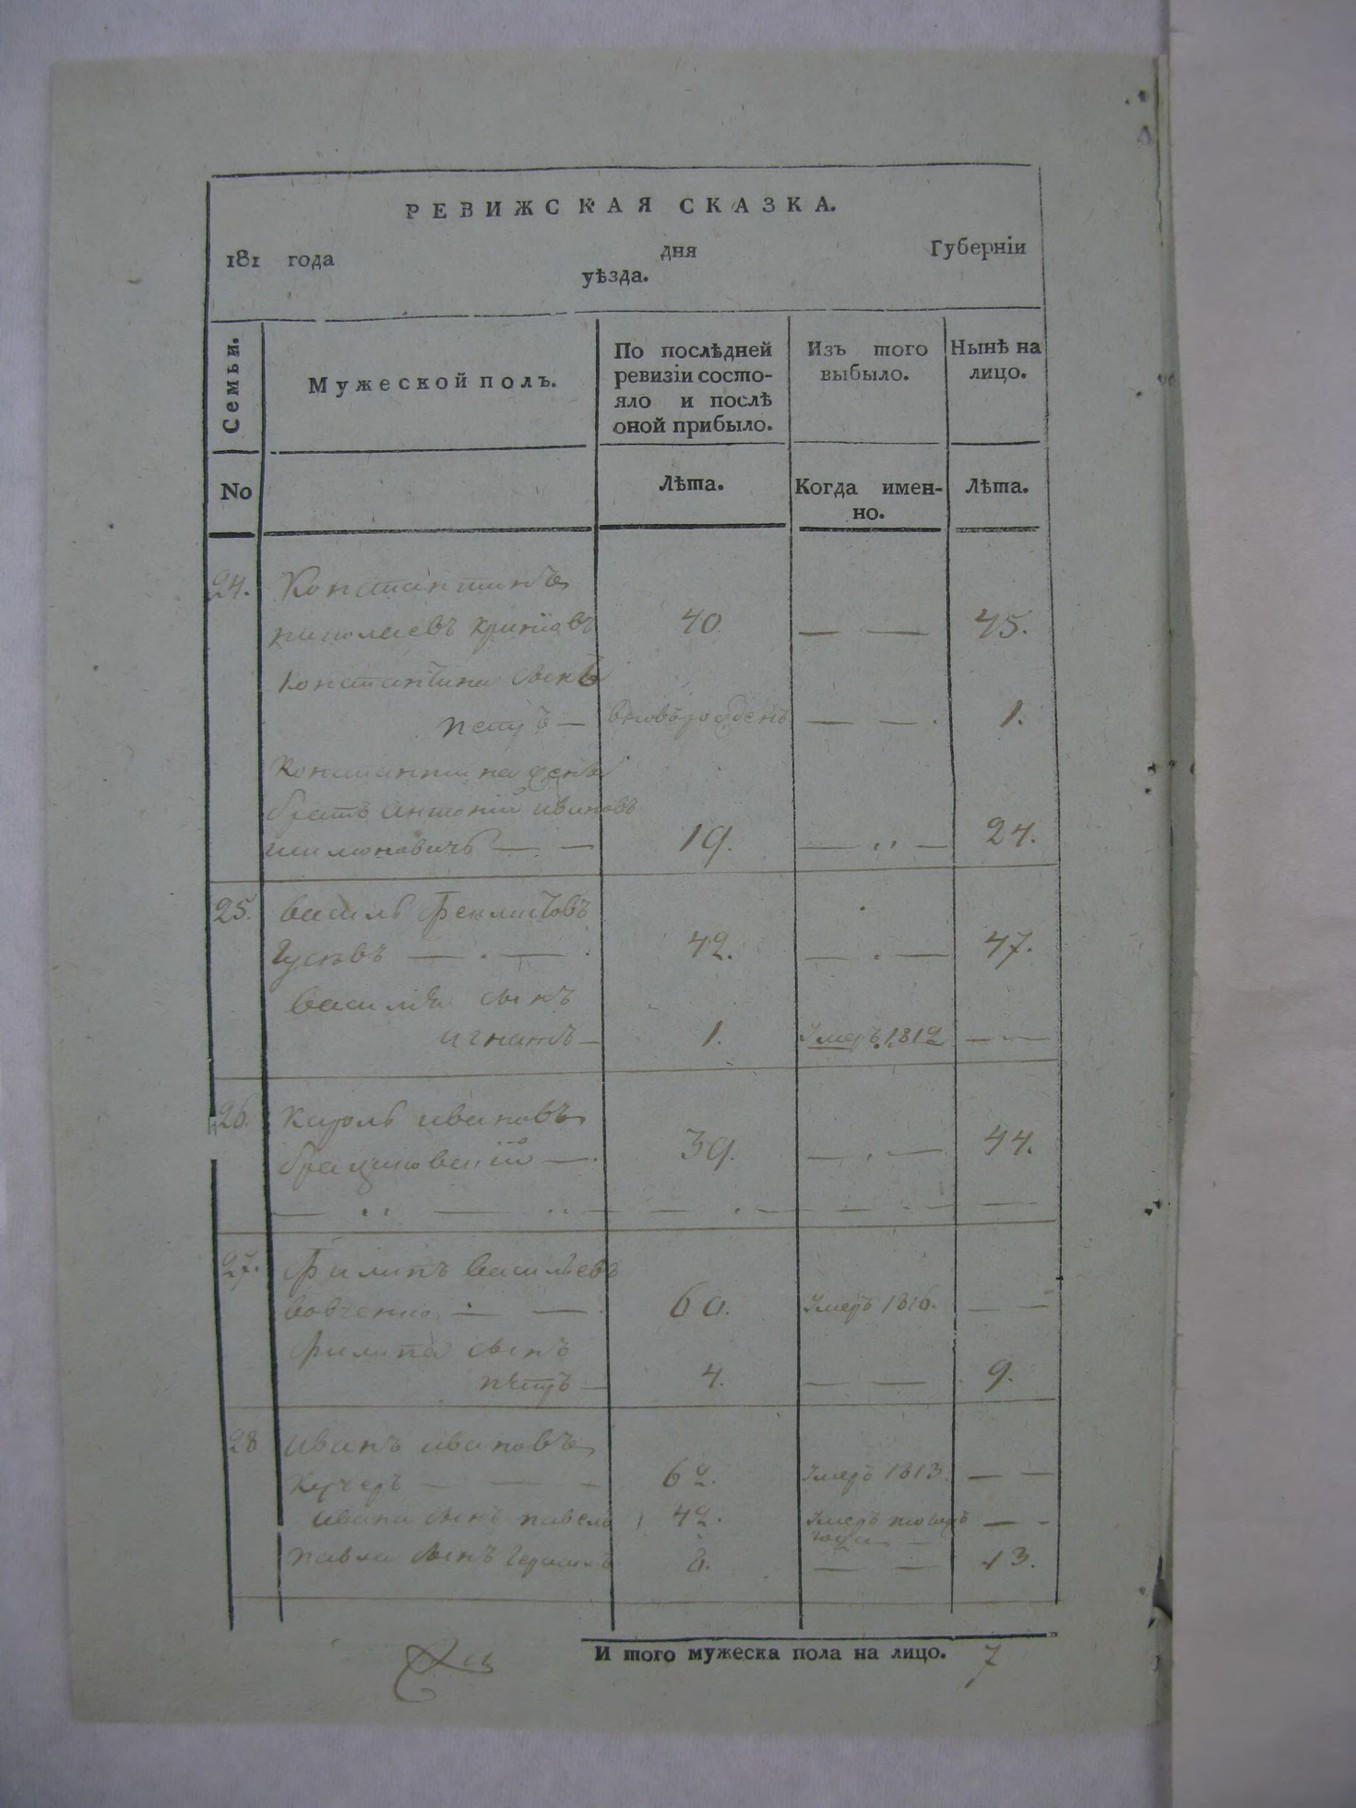 РЕВИЖСКАЯ СКАЗКА.
181 года дня Губерніи
уѣзда.
Семьи.
Мужеской полъ.
По послѣдней ревизіи состо-
яло и послѣ
оной прибыло.
Изъ того
выбыло.
Нынѣ на
лицо.
No
Лѣта.
Когда имен-
но.
Лѣта.
24. Константинъ
николаевъ 40 — — 45.
Константина сынъ
петръ — вновь рожденъ — — 1.
Константина
братъ антоній ивановъ
19. — — 24.
25. василь Феклистовъ
Гусевъ — — 42. — — 47.
Василія сынъ
игнатъ — 1. Умеръ 1812 — —
26. Кароль ивановъ
39. — — 44.
27. Филипъ васильевъ
вовченко — — 60. Умеръ 1816. — —
Филипа сынъ
петръ — 4. — — 9.
28 иванъ ивановъ
Кучеръ — — 62. Умеръ 1813. — —
ивана сынъ павелъ 42. Умеръ того
года — —
павла сынъ Герасимъ 8. — — 13.
И того мужеска пола на лицо. 7